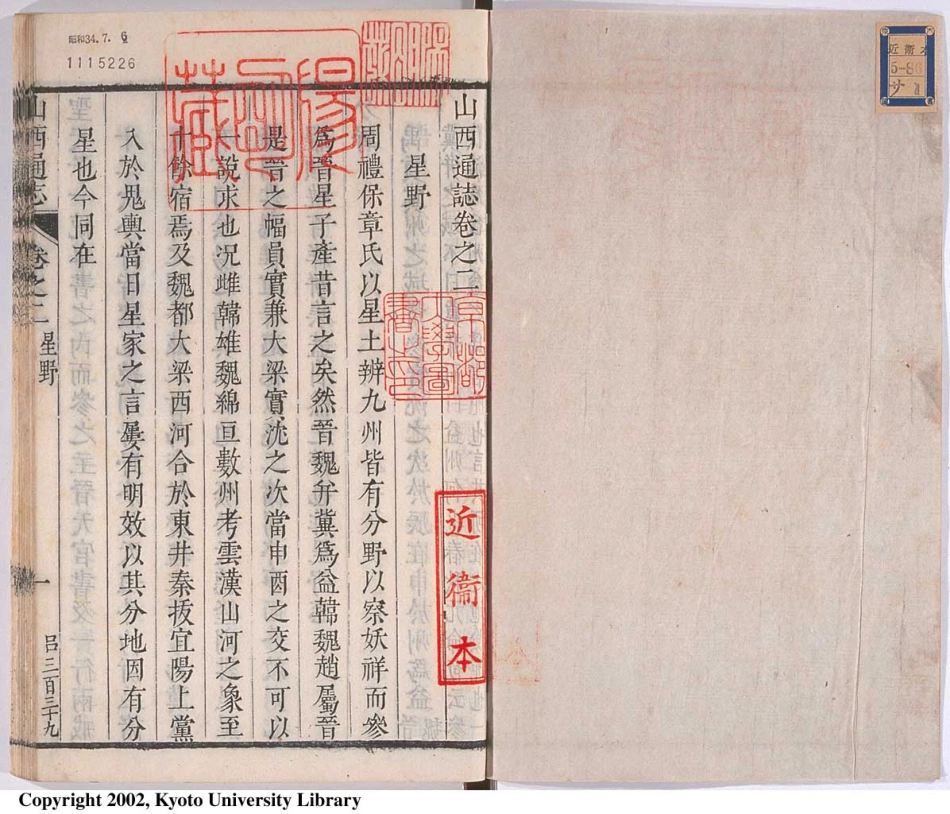 山西通誌卷之二
星野
周禮保章氏以星土辨九州皆有分野以察妖祥而參
爲晉星子產昔言之矣然晉魏幷冀爲益韓魏趙屬晉
是晉之幅員實兼大梁實沈之次當申酉之交不可以
說求也况雌韓雄魏綿亘數州考雲漢山河之象至
十餘宿焉及魏都大梁西河合於東井秦拔宜陽上黨
入於晁輿當日星家之言屡有明效以其分地因有分
星也今同在
山西通志
卷之二
星野
一
呂三百三十九
昭和34.7.6
1115226
陽明藏
近衞本
京都
大學圖
書之印
近衞本
5-86
サ 1
Copyright 2002, Kyoto University Library